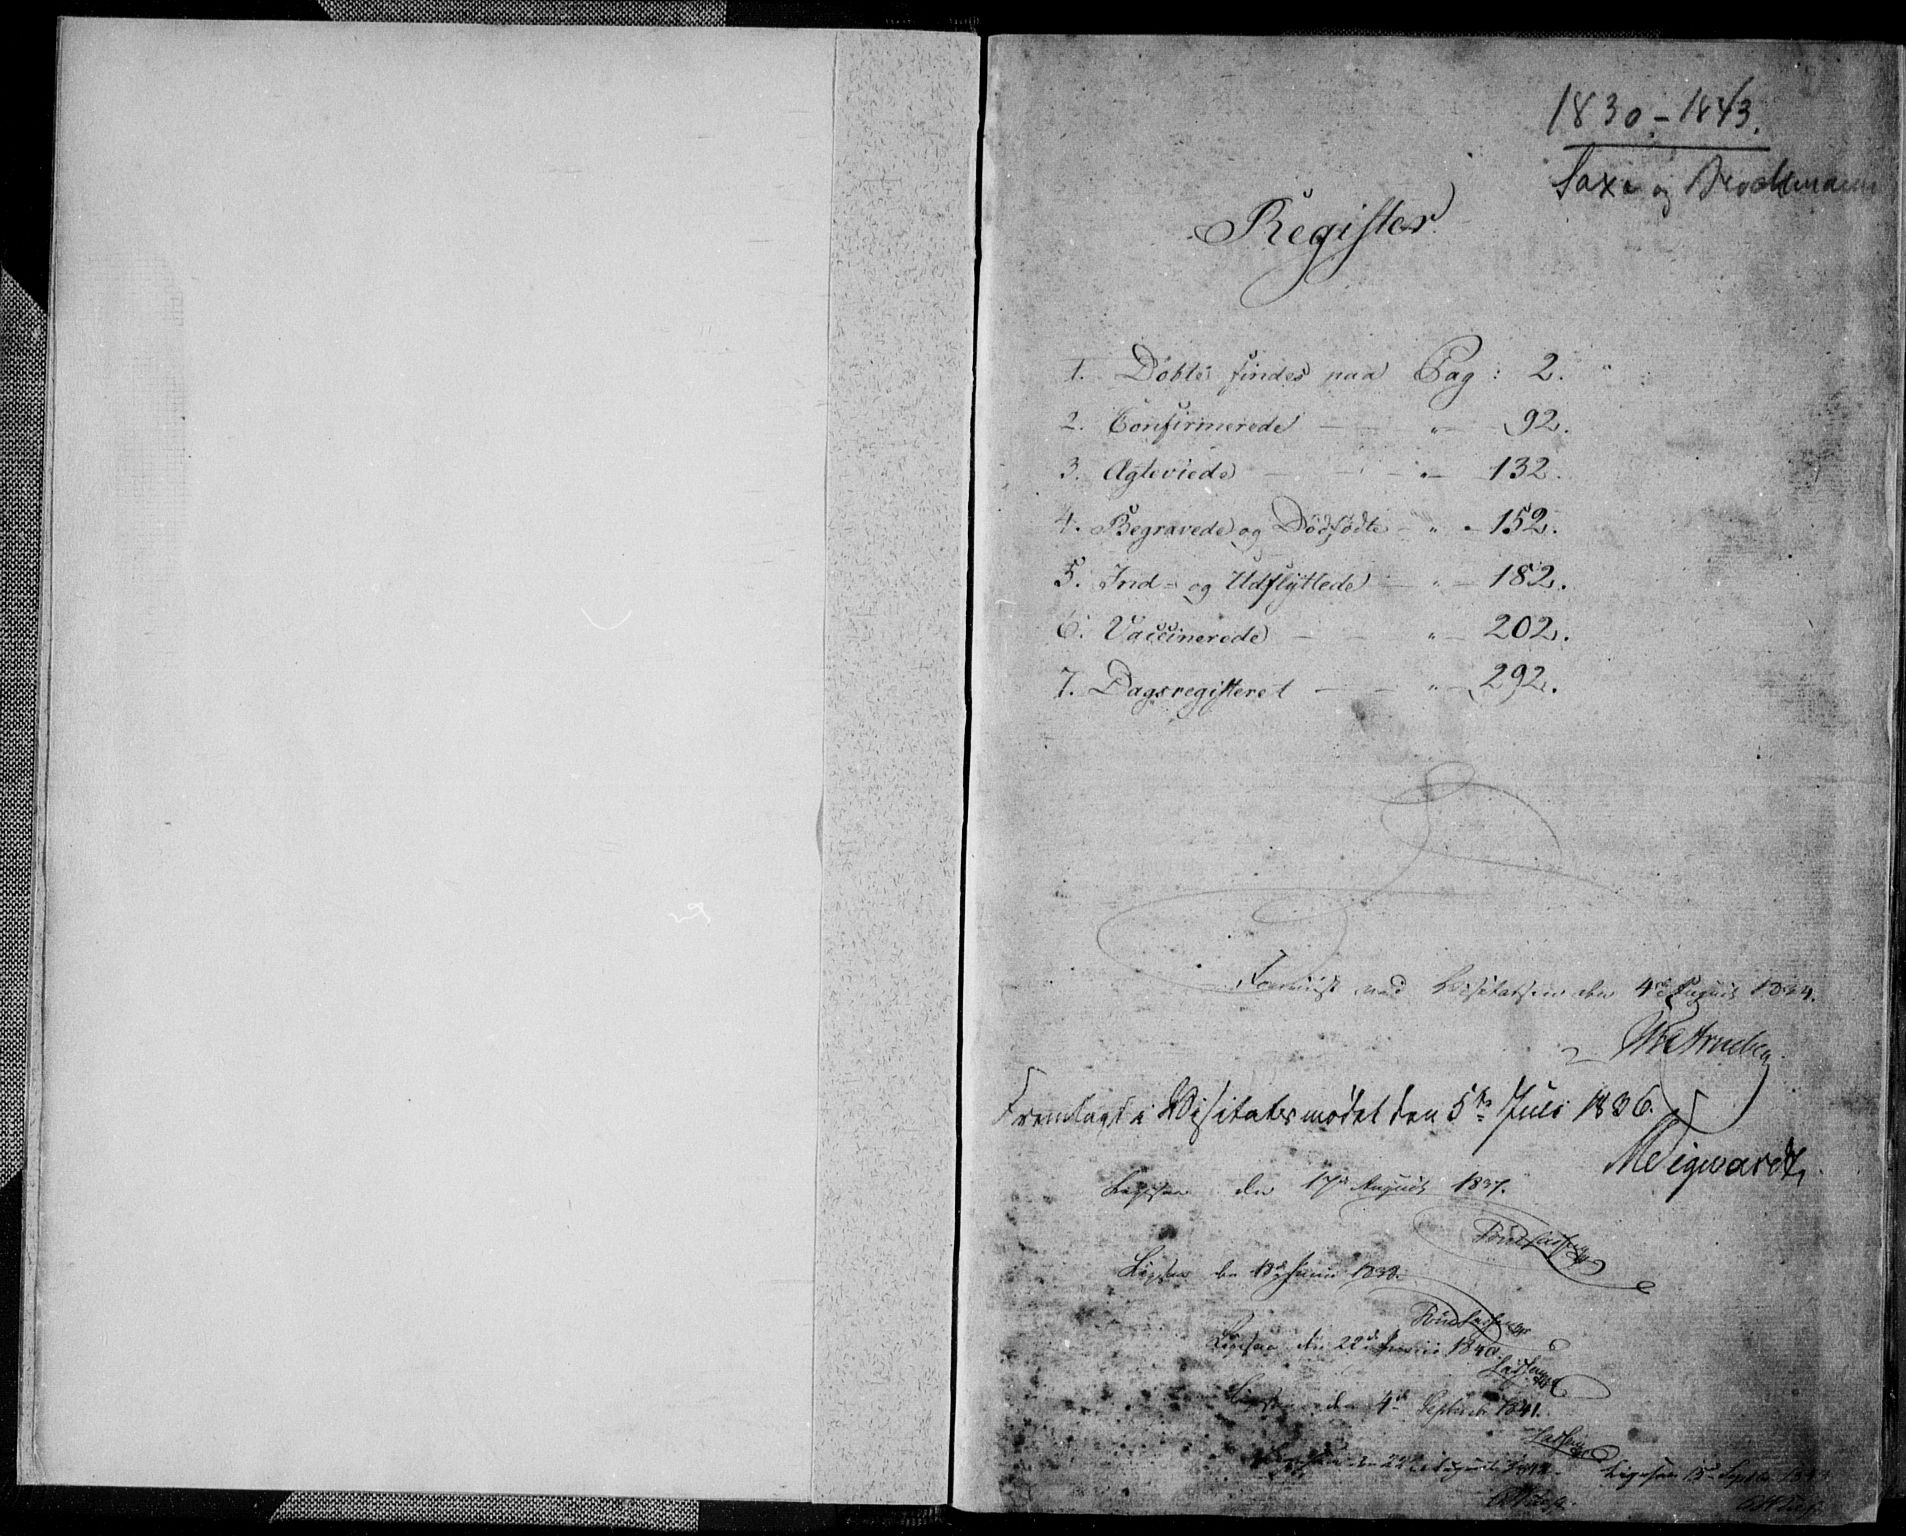 1830-1843.
Saxe og Brockmann
Register
1. Döbte findes paa Pag: 2.
2. Confirmerede — — „ — 92.
3. Ægteviede — — - „ — 132.
4. Begravede og Dödfödte - „ - 152.
5. Ind- og Udflyttede — „ — 182.
6. Vaccinerede — — „ — 202.
7. Dagsregisteret — — „ — 292.
Foreviist ved Visitatsen den 4de August 1834.
Fremlagt i Visitatsmødet den 5te Juli 1836.
MSigwardt
Ligesaa den 17de August 1837.
Ligesaa den 18de Juni 1838.
Ligesaa den 22de Juni 1840.
Ligesaa den 4de Septbr 1841.
Ligesaa den 22de August 1842.
Ligesaa 15de Septbr 1843